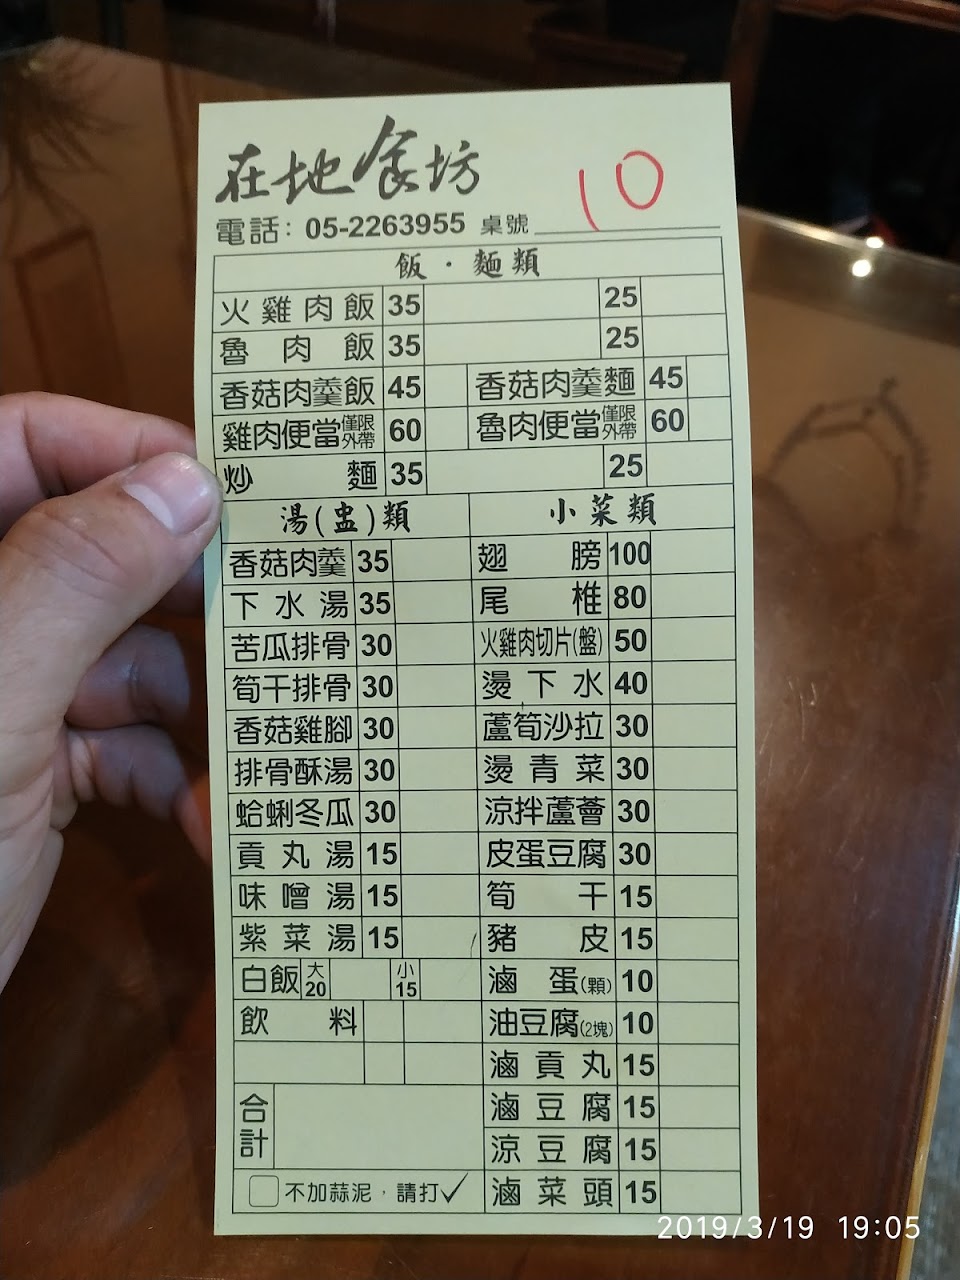 在地食坊
10
電話：05-2263955 桌號
飯．麵類
火雞肉飯 35 25
魯肉飯 35 25
香菇肉羹飯 45 香菇肉羹麵 45
雞肉便當僅限外帶 60 魯肉便當僅限外帶 60
炒麵 35 25
湯(盅)類 小菜類
香菇肉羹 35 翅膀 100
下水湯 35 尾椎 80
苦瓜排骨 30 火雞肉切片(盤) 50
筍干排骨 30 燙下水 40
香菇雞腳 30 蘆筍沙拉 30
排骨酥湯 30 燙青菜 30
蛤蜊冬瓜 30 涼拌蘆薈 30
貢丸湯 15 皮蛋豆腐 30
味噌湯 15 筍干 15
紫菜湯 15 豬皮 15
白飯 大20 小15 滷蛋(顆) 10
飲料 油豆腐(2塊) 10
滷貢丸 15
合計 滷豆腐 15
涼豆腐 15
不加蒜泥，請打✓ 滷菜頭 15
2019/3/19 19:05